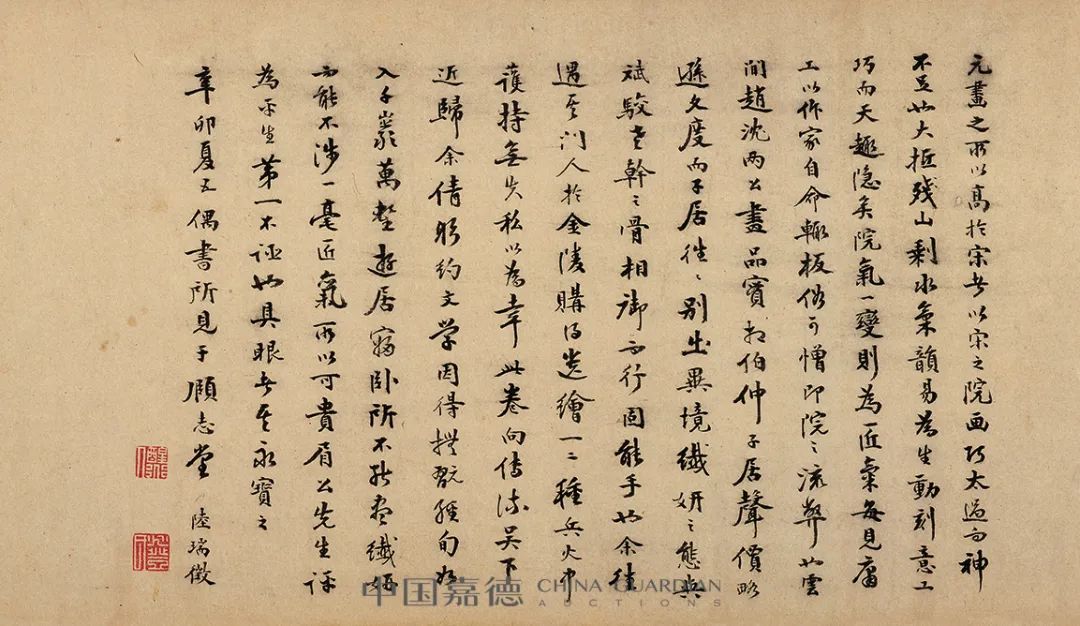 元畫之所以高於宋者以宋之院画巧太過而神
不足也大抵残山剩水氣韻易為生動刻意工
巧而天趣隐矣院氣一變則為匠氣每見庸
工以作家自命輙板俗可憎即院之流弊也雲
间趙沈两公畫品實相伯仲子居聲價略
遜文度而子居往〻别出異境纖妍之態與
斌駮老幹之骨相御而行固能手也余往
遇其门人於金陵購得遗繪一二種兵火中
護持無失私以為幸此卷向傳流吴下
近歸余倩躬约文学因得撫翫經旬如
入千巖萬壑遊居寤卧所不能盡纖妍
而能不涉一毫匠氣所以可貴眉公先生评
為平生第一不诬也具眼者其永寶之
辛卯夏五偶書所見于頋志堂 陸瑞徵
中国嘉德 CHINA GUARDIAN
AUCTIONS